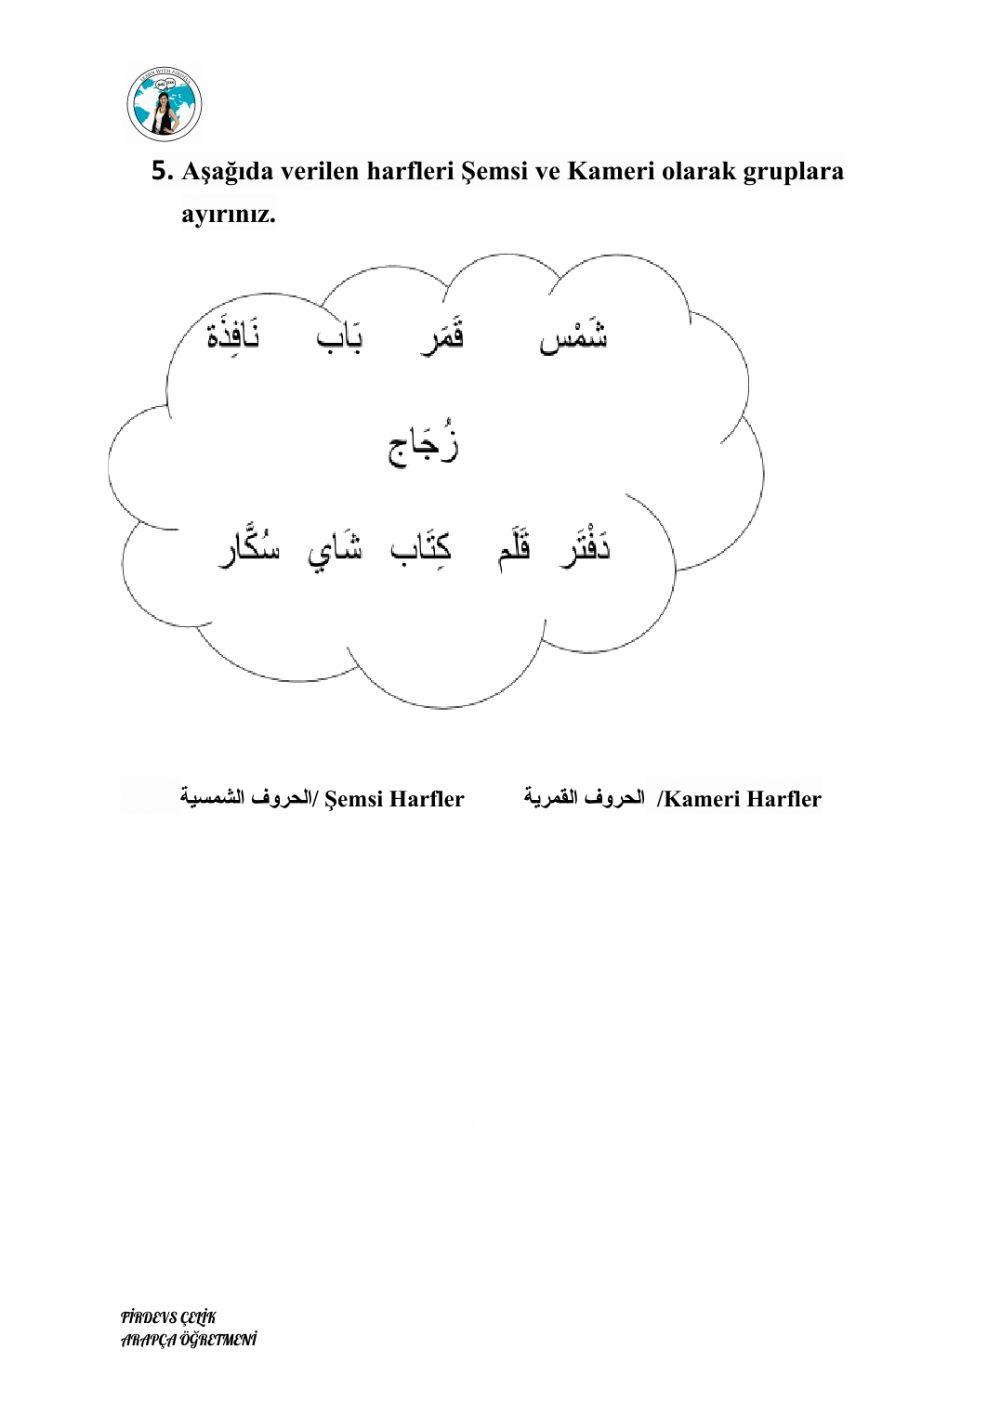 5. Aşağıda verilen harfleri Şemsi ve Kameri olarak gruplara
ayırınız.
شَمْس قَمَر بَاب نَافِذَة
زُجَاج
دَفْتَر قَلَم كِتَاب شَاي سُكَّار
الحروف الشمسية/ Şemsi Harfler الحروف القمرية /Kameri Harfler
FİRDEVS ÇELİK
ARAPÇA ÖĞRETMENİ